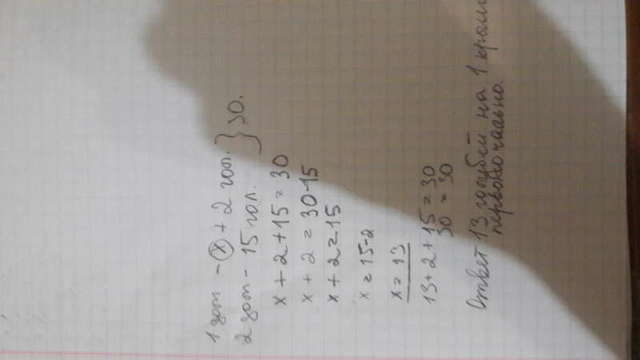 1 дом - x + 2 гол. } 30.
2 дом - 15 гол.
x + 2 + 15 = 30
x + 2 = 30-15
x + 2 = 15
x = 15-2
x = 13
13 + 2 + 15 = 30
30 = 30
Ответ 13 голубей на 1
первоначально.